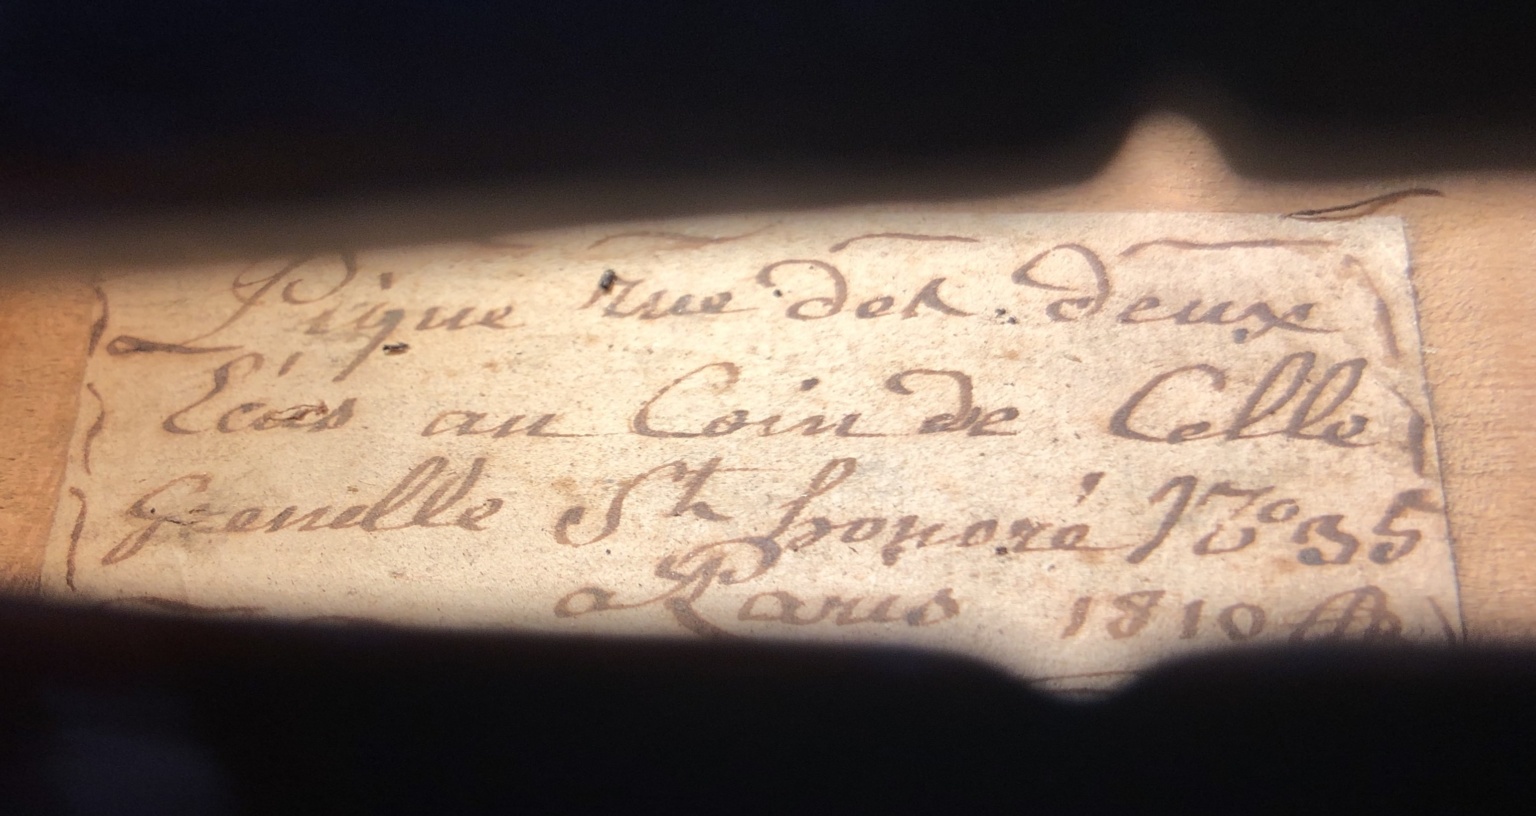 Pique rue des deux
Ecus au Coin de Celle
Grenelle St honoré No 35
a Paris 1810